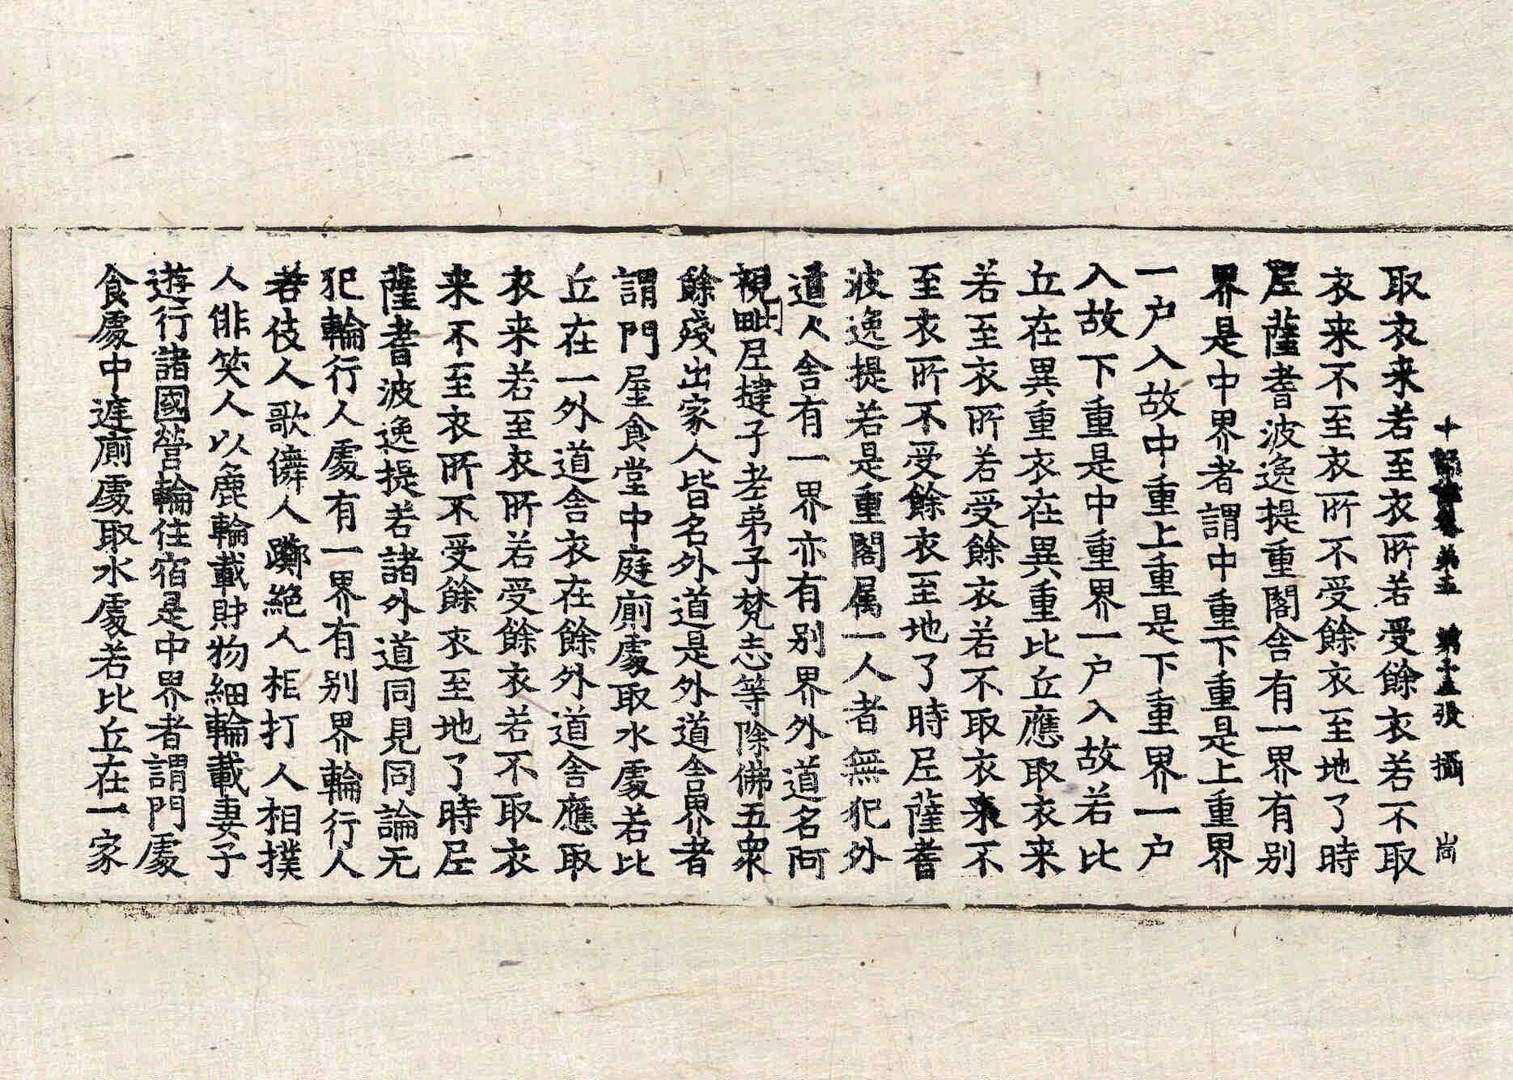 十誦律卷第五 第十五張 攝 尚
取衣来若至衣所若受餘衣若不取
衣来不至衣所不受餘衣至地了時
𡰱薩耆波逸提重閣舎有一界有别
界是中界者謂中重下重是上重界
一户入故中重上重是下重界一户
入故下重是中重界一户入故若比
丘在異重衣在異重比丘應取衣来
若至衣所若受餘衣若不取衣来不
至衣所不受餘衣至地了時𡰱薩耆
波逸提若是重閣属一人者無犯外
道人舎有一界亦有别界外道名阿
視毗𡰱揵子老弟子梵志等除佛五衆
餘殘出家人皆名外道是外道舎界者
謂門屋食堂中庭廁處取水處若比
丘在一外道舎衣在餘外道舎應取
衣来若至衣所若受餘衣若不取衣
来不至衣所不受餘衣至地了時𡰱
薩耆波逸提若諸外道同見同論无
犯輪行人處有一界有别界輪行人
者伎人歌儛人躑絕人相打人相撲
人俳笑人以麁輪載財物細輪載妻子
遊行諸國營輪住宿是中界者謂門處
食處中庭廁處取水處若比丘在一家